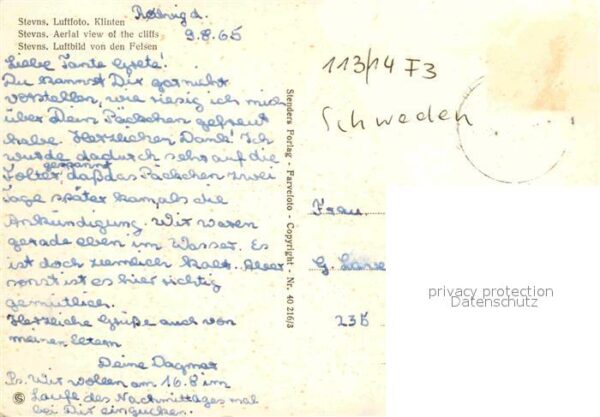 Rødvig d.
9.8.65
Stevns. Luftfoto. Klinten
Stevns. Aerial view of the cliffs
Stevns. Luftbild von den Felsen
Liebe Tante Grete!
Du kannst Dir gar nicht
vorstellen, wie riesig ich mich
über Dein Päckchen gefreut
habe. Herzlichen Dank! Ich
wurde dadurch sehr auf die
gespannt
Folter, daß das Päckchen zwei
Tage später kam als die
Ankündigung. Wir waren
gerade eben im Wasser. Es
ist doch ziemlich kalt. Aber
sonst ist es hier richtig
gemütlich.
Herzliche Grüße auch von
meinen Eltern
Deine Dagmar
Ps. Wir wollen am 16.8 im
Laufe des Nachmittages mal
bei Dir eingucken.
Stenders Forlag - Farvefoto - Copyright - Nr. 40 216/3
113/14 F3
Schweden
Frau
G.
235
privacy protection
Datenschutz